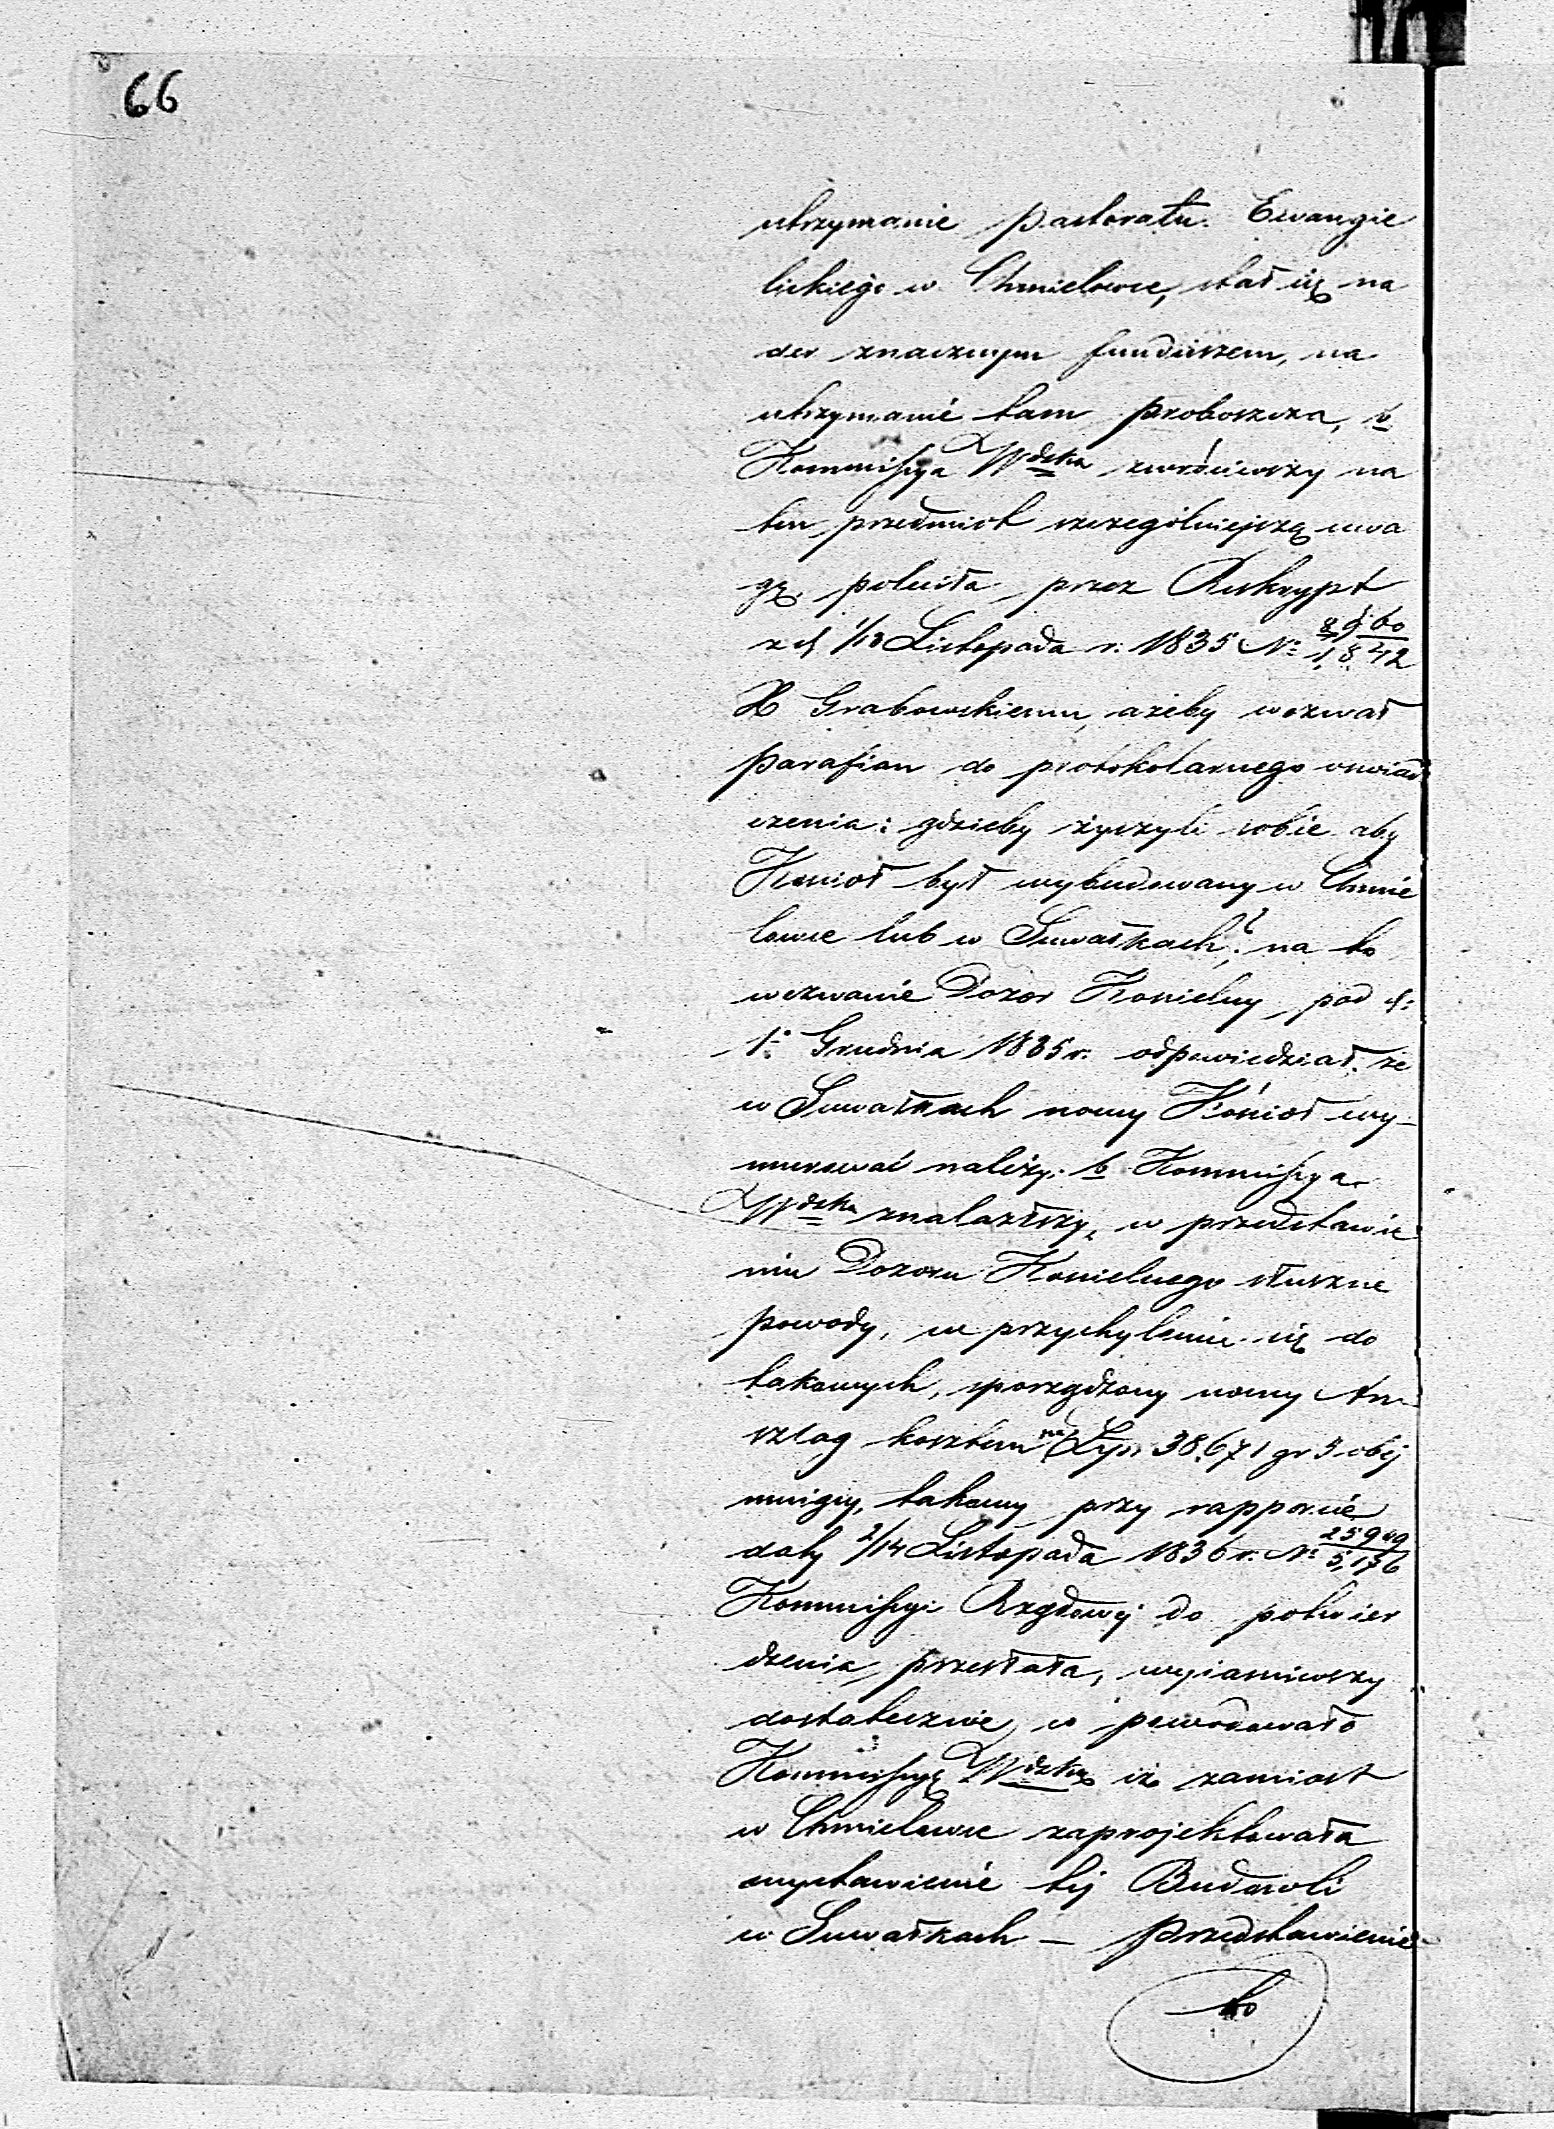 66
utrzymanie pastoratu Ewangie
lickiego w Chmielowce, stał się na
der znacznym funduszem, na
utrzymanie tam proboszcza, b
Kommissya Wdzka zwróciwszy na
ten przedmiot szczególniejszą uwa
gę, poleciła przez Reskrypt
z d 1/13 Listopada r. 1835 No
X Grabowskiemu, ażeby wezwał
parafian do protokolarnego oswiad
czenia: gdzieby życzyli sobie aby
Kosciół był wybudowany w Chmie
lowce lub w Suwałkach? na to
wezwanie Dozór Koscielny pod d:
1o Grudnia 1835 r. odpowiedział, że
w Suwałkach nowy Kościoł wy-
murować należy. b Kommissya
Wdzka znalazłszy, w przedstawie
niu Dozoru Koscielnego słuszne
powody, w przychylenie się do
takowych, sporządzony nowy An
szlag kosztem na Złp. 38,671 gr 5 obej
muiący, takowy przy rapporcie
daty 2/14 Listopada 1836 r. No 25909/5,176
Kommissyi Rządowej do potwier
dzenia przesłała, wyiasniwszy
dostatecznie, co powodowało
Kommissyę Wdzką iż zamiast
w Chmielowce zaprojektowała
wystawienie tej Budowli
w Suwałkach — przedstawienie
to